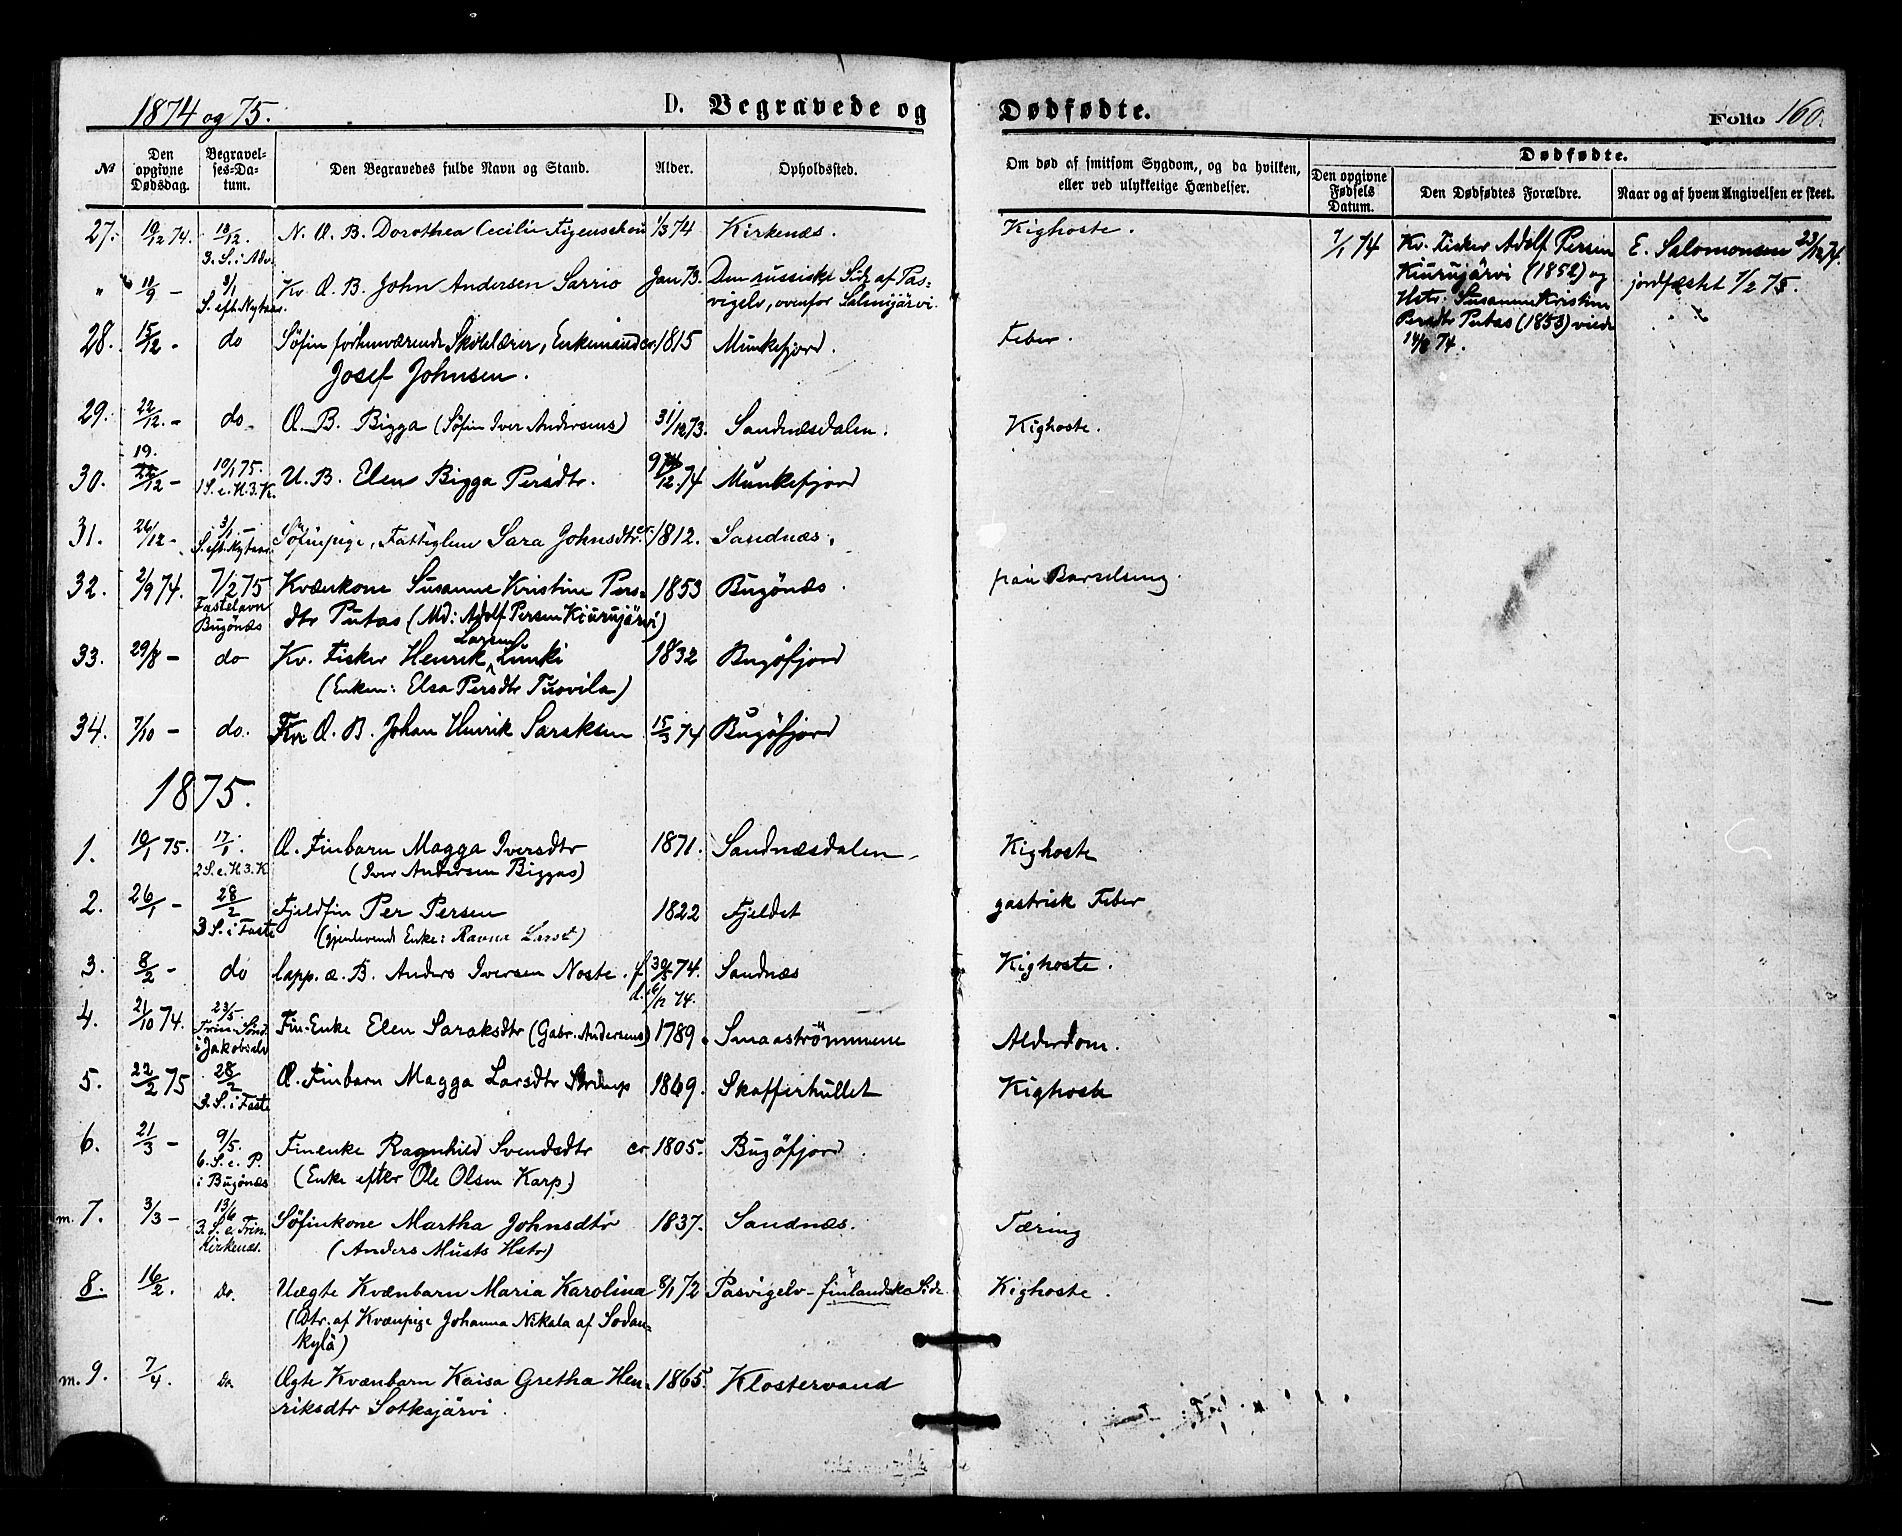 1874 og 75.
D. Begravede og Dødfødte.
Folio 160.
№
Den opgivne Dødsdag.
Begravelses-Datum.
Den Begravedes fulde Navn og Stand.
Alder.
Opholdssted.
Om død af smitsom Sygdom, og da hvilken, eller ved ulykkelige Hændelser.
Dødfødte.
Den opgivne Fødsels Datum.
Den Dødfødtes Forældre.
Naar og af hvem Angivelsen er skeet.
27. 10/12 74. 13/12. N. Æ. B. Dorothea Cecilie 1/3 74 Kirkenæs. Kighoste.
3. S. i Adv.
7/1 74 Kv. Fisker Adolf Persen E. Salomonsen 23/12 74.
Kiurujärvi (1852) og jordfæstet 7/2 75.
Hstr. Susanne Kristine
Persdtr Putas (1853) viede
74.
" 11/9 — 3/1 Kv Æ. B. John Andersen Sarrio Jan 73. Den russiske Side af Pas-
S. eft. Nytaar. vigelv, ovenfor Salmijärvi.
28. 15/12 - do Söfin forhenværende Skolelærer, Enkemand cr. 1815 Munkefjord. Feber.
Josef Johnsen.
29. 22/12. - do. Æ. B. Bigga (Söfin Iver Andersens) 31/12 73. Sandnæsdalen. Kighoste.
19.
30. /12 - 10/1 75. U. B. Elen Bigga Persdtr. 9/12 74 Munkefjord
1 S. e. H. 3. K.
31. 26/12 - 3/1 — Söfinpige, Fattiglem Sara Johnsdtr. cr. 1812. Sandnæs.
S. eft. Nytaar.
32. 2/9 74. 7/2 75 Kvænkone Susanne Kristine Pers- 1853 Bugönæs. paa Barselseng.
Fastelavn dtr Putas (Md: Adolf Persen Kiurujärvi)
Bugönæs
33. 29/8 - do Kv. Fisker Henrik Larsen Lunki 1832 Bugöfjord
(Enken: Elsa Persdtr Tuovila)
34. 7/10 - do. Æ. B. Johan Henrik Sarsksen 15/3 74 Bugöfjord
1875.
1. 10/1 75. 17/1. Æ. Finbarn Magga Iversdtr 1871. Sandnæsdalen Kighoste
2 S. e. H. 3. K (Iver Andersen Biggas)
2. 26/1 - 28/2 Fjeldfin Per Persen 1822 Fjeldet gastrisk Feber
3 S. i Faste (gjenlevende Enke: Ravna Larsd.)
3. 8/2 - do lapp. æ. B. Anders Iversen Noste. f 30/ 74. Sandnæs Kighoste.
d. 6/12 74.
4. 21/10 74. 23/5 Fin-Enke Elen Saraksdtr (Gabr. Andersens) 1789. Smaaströmmene Alderdom.
Trin. Sönd.
i Jakobselv
5. 22/2 75 28/2 Æ. Finbarn Magga Larsdtr 1869. Skafferhullet Kighoste
3. S. i Faste
6. 21/3 - 9/5 Finenke Ragnhild Svendsdtr cr 1805. Bugöfjord.
6. S. e. P. (Enke efter Ole Olsen Karp)
i Bugönæs
m. 7. 3/3 - 13/6 Söfinkone Martha Johnsdtr 1837. Sandnæs. Tæring
3. S. e. Trin. (Anders Musts Hstr)
Kirkenæs.
8. 16/2. Do. Uægte Kvænbarn Maria Karolina 8/1 72 Pasvigelv - finlandske Side Kighoste.
(Dtr. af Kvænpige Johanna Nikala af Sodan-
kylä)
m. 9. 7/4. Do. Ægte Kvænbarn Kaisa Gretha Hen- 1865. Klostervand
riksdtr Sotkajärvi.